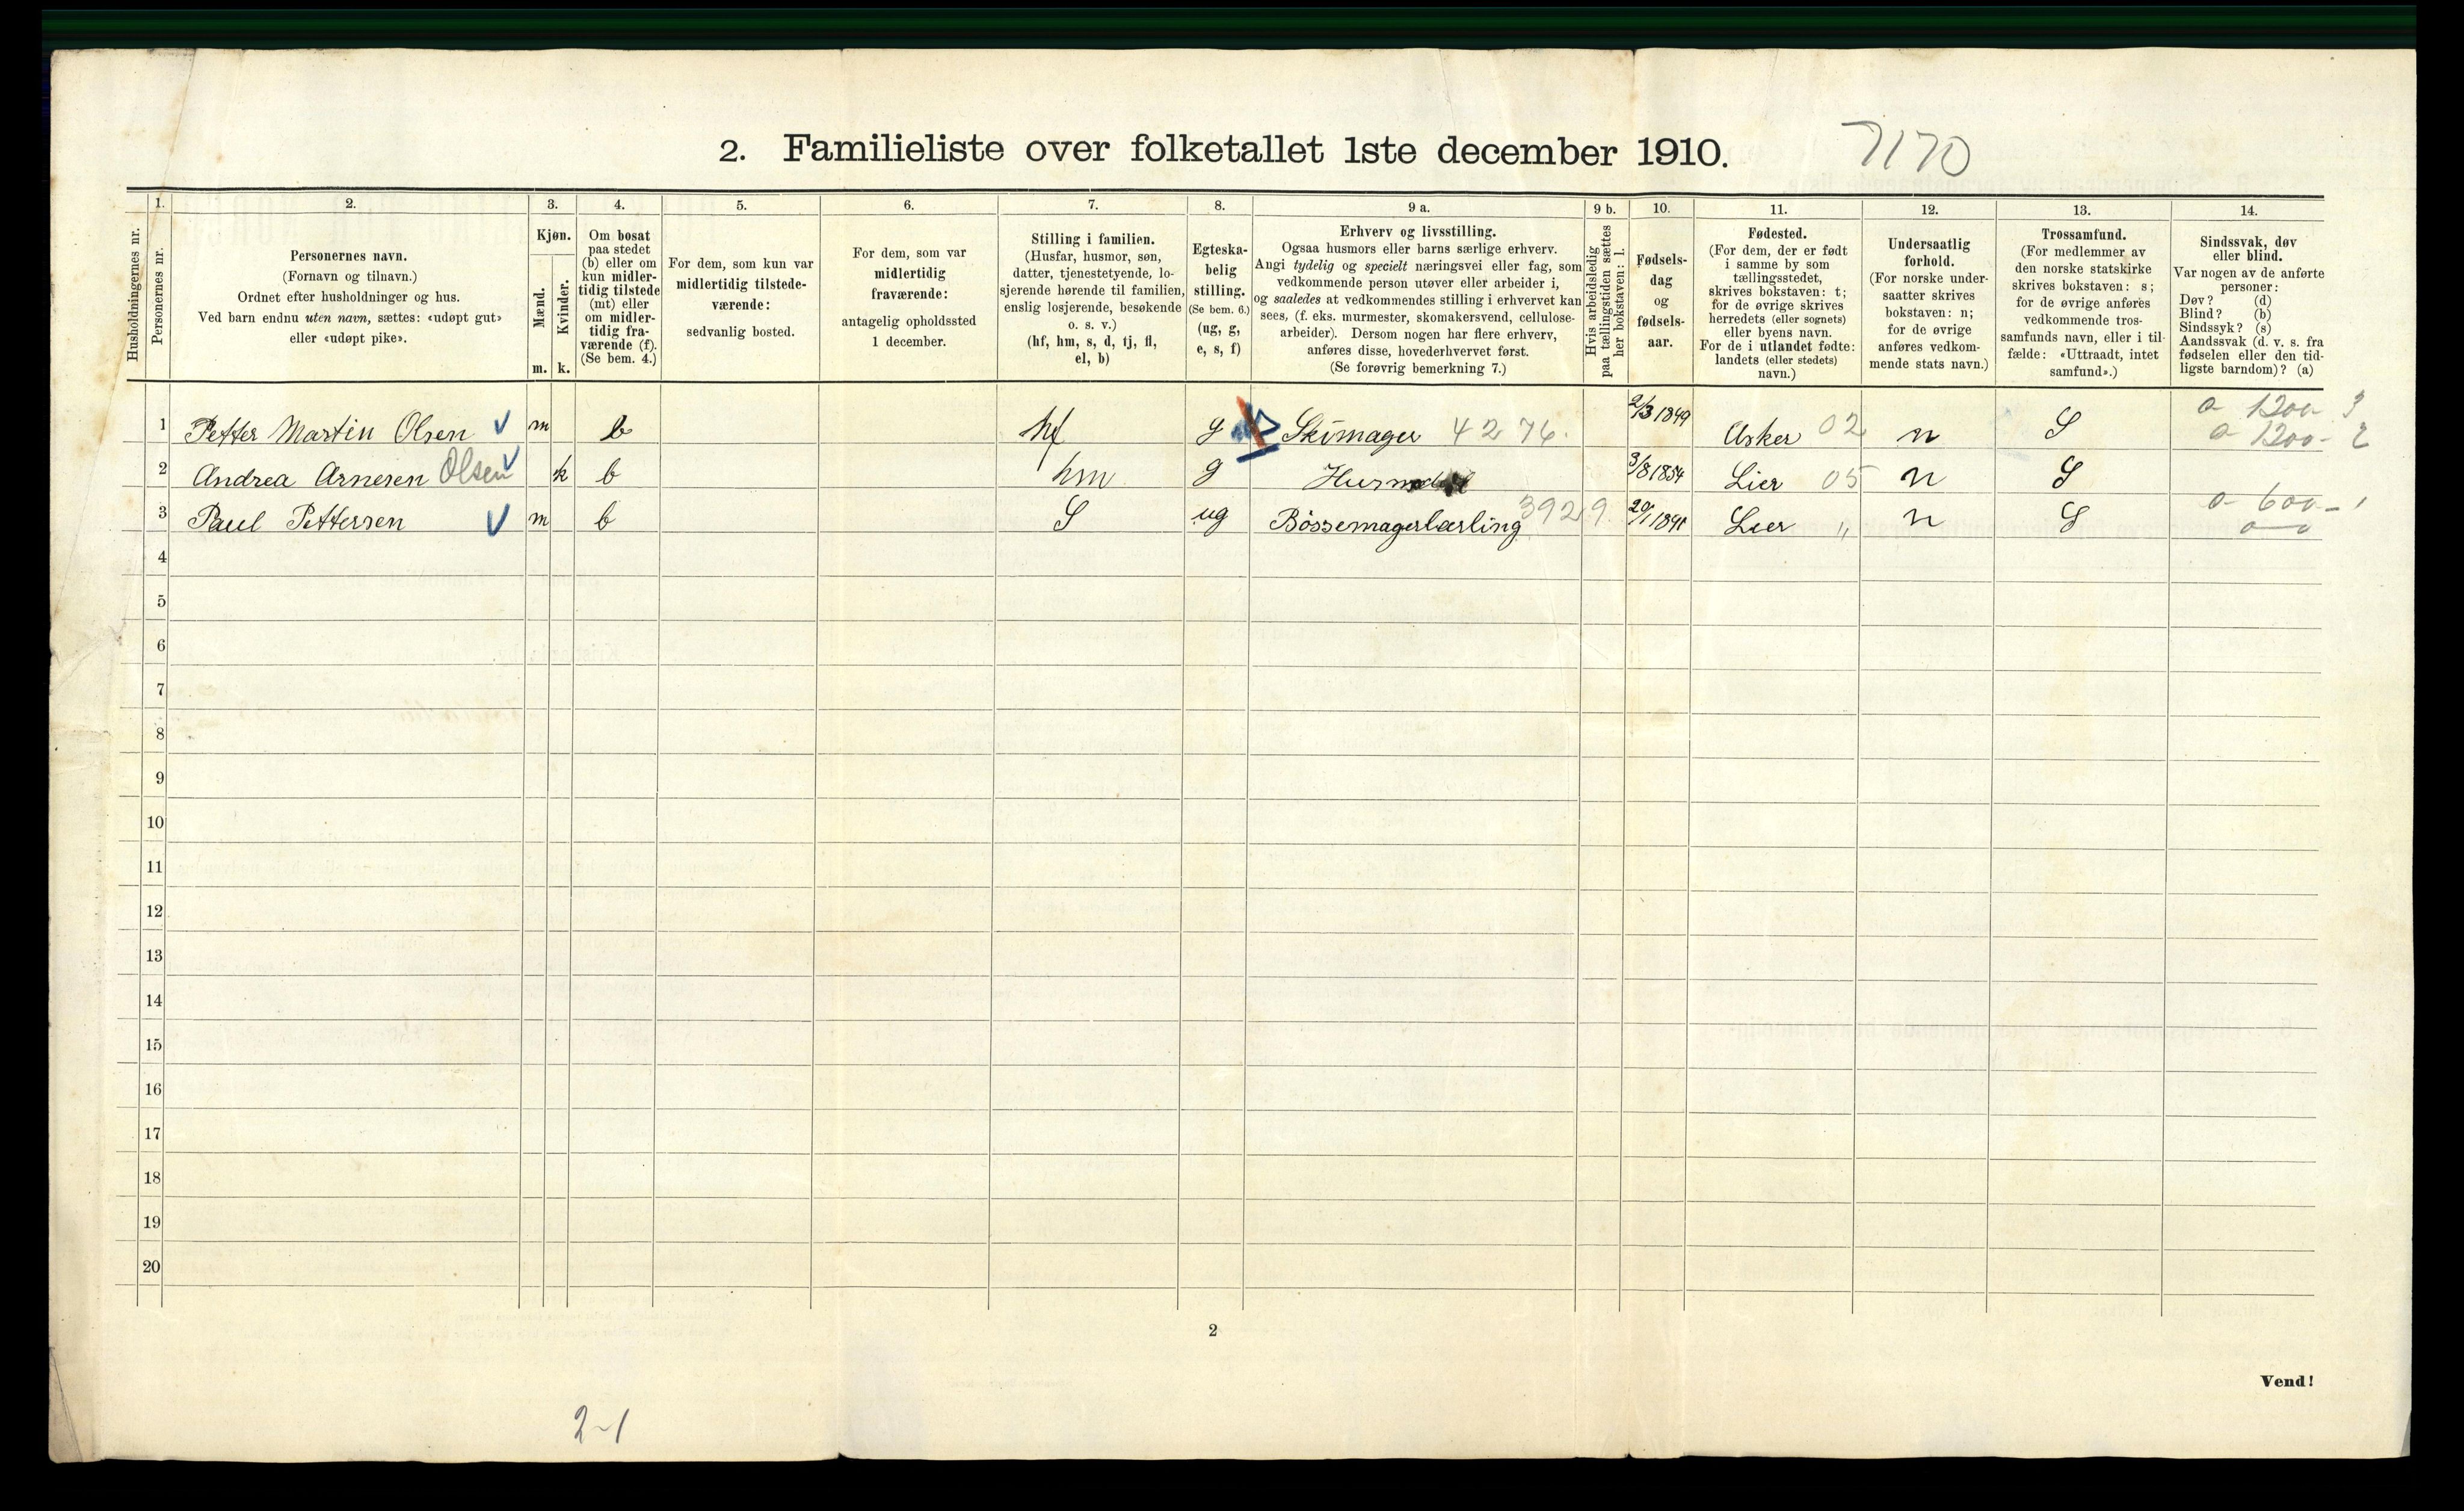 2. Familieliste over folketallet 1ste december 1910.
7170
Husholdningernes nr.
1.
Personernes nr.
2.
Personernes navn.
(Fornavn og tilnavn.)
Ordnet efter husholdninger og hus.
Ved barn endnu uten navn, sættes: «udøpt gut»
eller «udøpt pike».
3.
Kjøn.
Mænd.
m.
Kvinder.
k.
4.
Om bosat
paa stedet
(b) eller om
kun midler-
tidig tilstede
(mt) eller
om midler-
tidig fra-
værende (f).
(Se bem. 4.)
5.
For dem, som kun var
midlertidig tilstede-
værende:
sedvanlig bosted.
6.
For dem, som var
midlertidig
fraværende:
antagelig opholdssted
1 december.
7.
Stilling i familien.
(Husfar, husmor, søn,
datter, tjenestetyende, lo-
sjerende hørende til familien,
enslig losjerende, besøkende
o. s. v.)
(hf, hm, s, d, tj, fl,
el, b)
8.
Egteska-
belig
stilling.
(Se bem. 6.)
(ug, g,
e, s, f)
9 a.
Erhverv og livsstilling.
Ogsaa husmors eller barns særlige erhverv.
Angi tydelig og specielt næringsvei eller fag, som
vedkommende person utøver eller arbeider i,
og saaledes at vedkommendes stilling i erhvervet kan
sees, (f. eks. murmester, skomakersvend, cellulose-
arbeider). Dersom nogen har flere erhverv,
anføres disse, hovederhvervet først.
(Se forøvrig bemerkning 7.)
9 b.
Hvis arbeidsledig
paa tællingstiden sættes
her bokstaven: l.
10.
Fødsels-
dag
og
fødsels-
aar.
11.
Fødested.
(For dem, der er født
i samme by som
tællingsstedet,
skrives bokstaven: t;
for de øvrige skrives
herredets (eller sognets)
eller byens navn.
For de i utlandet fødte:
landets (eller stedets)
navn.)
12.
Undersaatlig
forhold.
(For norske under-
saatter skrives
bokstaven: n;
for de øvrige
anføres vedkom-
mende stats navn.)
13.
Trossamfund.
(For medlemmer av
den norske statskirke
skrives bokstaven: s;
for de øvrige anføres
vedkommende tros-
samfunds navn, eller i til-
fælde: «Uttraadt, intet
samfund».)
14.
Sindssvak, døv
eller blind.
Var nogen av de anførte
personer:
Døv? (d)
Blind? (b)
Sindssyk? (s)
Aandssvak (d. v. s. fra
fødselen eller den tid-
ligste barndom)? (a)
1 Petter Martin Olsen m b hf g Skimager 4276. 2/3 1849 Asker 02 n S a 1200 3
a 1200- 2
2 Andrea Arnesen Olsen k b hm g 3/8 1854 Lier 05 n S
3 Paul Pettersen m b S ug Bössemagerlærling 3929 20/1 1891 Lier " n S a 600- 1
4
5
6
7
8
9
10
11
12
13
14
15
16
17
18
19
20
2
Vend!
2-1